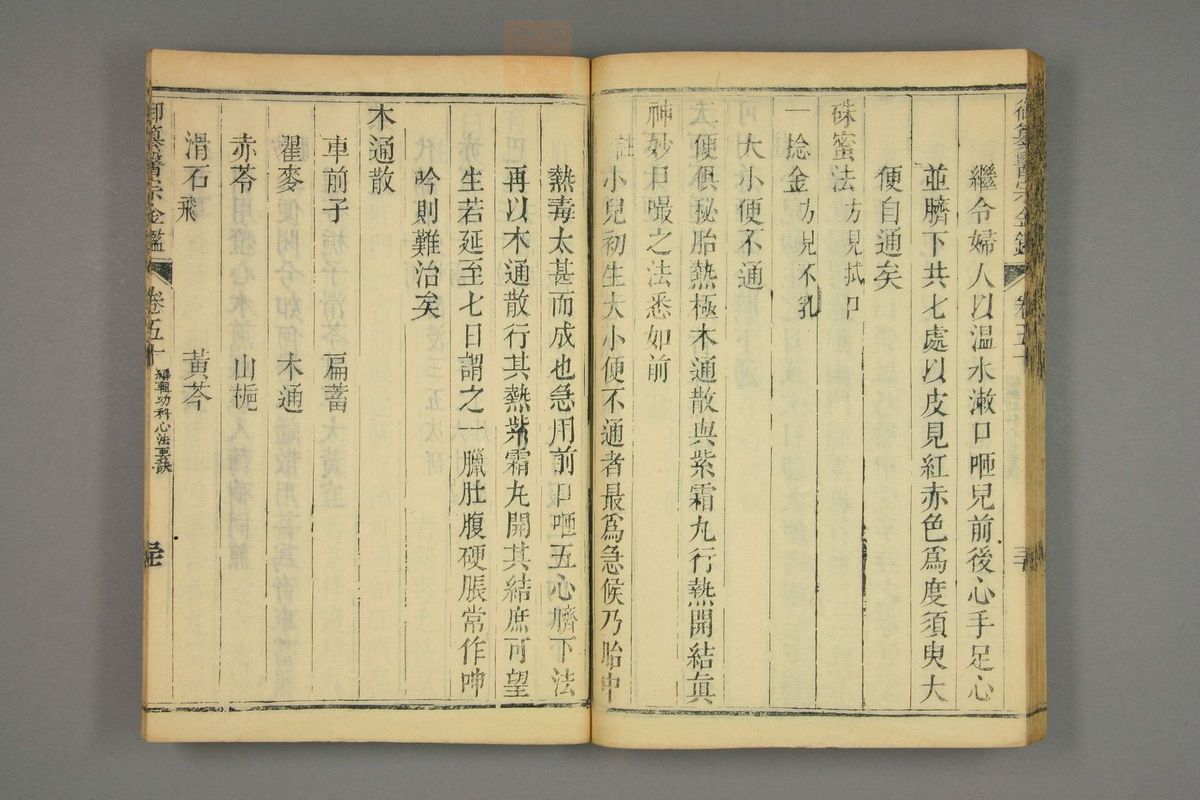 繼令婦人以温水漱口咂兒前後心手足心
並臍下共七處以皮見紅赤色爲度須臾大
便自通矣
硃蜜法方見拭口
一捻金方見不乳
大小便不通
大便俱秘胎熱極木通散與紫霜丸行熱開結真
神妙口嘬之法悉如前
註小兒初生大小便不通者最爲急候乃胎中
熱毒太甚而成也急用前口咂五心臍下法
再以木通散行其熱紫霜丸開其結庶可望
生若延至七日謂之一臘肚腹硬脹常作呻
吟則難治矣
木通散
車前子 萹蓄
瞿麥 木通
赤苓 山梔
滑石飛 黃芩
御纂醫宗金鑑 卷五十 編輯幼科心法要訣